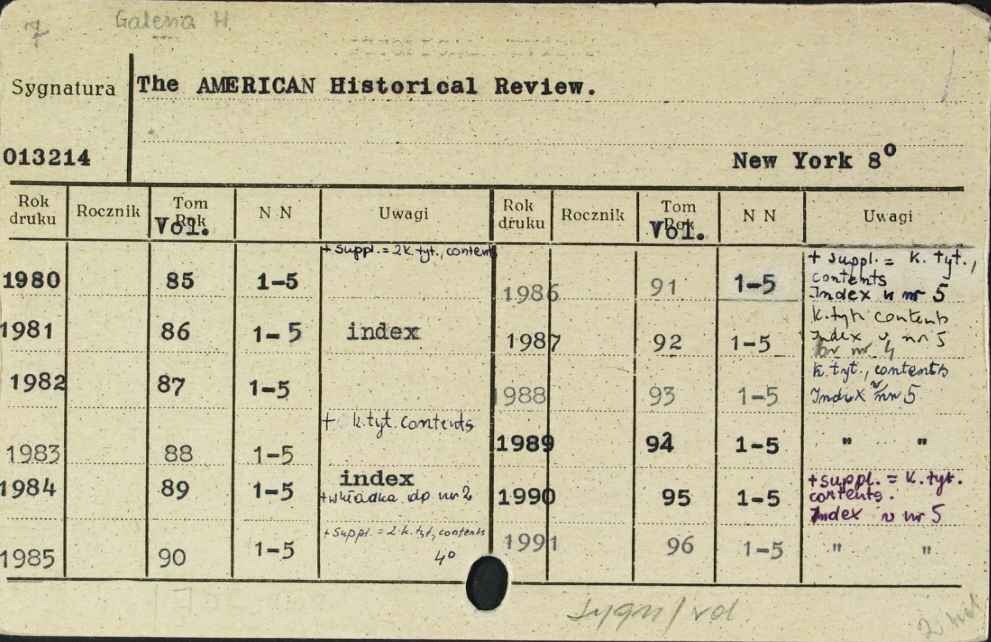 7 Galeria H.
Sygnatura The AMERICAN Historical Review.
013214 New York 8°
Rok druku Rocznik Tom Rok Vol. N N Uwagi Rok druku Rocznik Tom Rok Vol. N N Uwagi
+ suppl. = 2 k. tyt., contents
1980 85 1-5
1981 86 1-5 index
1982 87 1-5
+ k. tyt. contents
1983 88 1-5
1984 89 1-5 index
+ wkładka do nr 2
+ suppl. = 2 k. tyt., contents
1985 90 1-5 4°
+ suppl. = k. tyt.,
1986 91 1-5 contents
Index w nr 5
k. tyt. contents
1987 92 1-5 Index w nr 5
w nr 4
k. tyt., contents
1988 93 1-5 Index w nr 5
1989 94 1-5 " "
+ suppl. = k. tyt.
1990 95 1-5 contents.
Index w nr 5
1991 96 1-5 " "